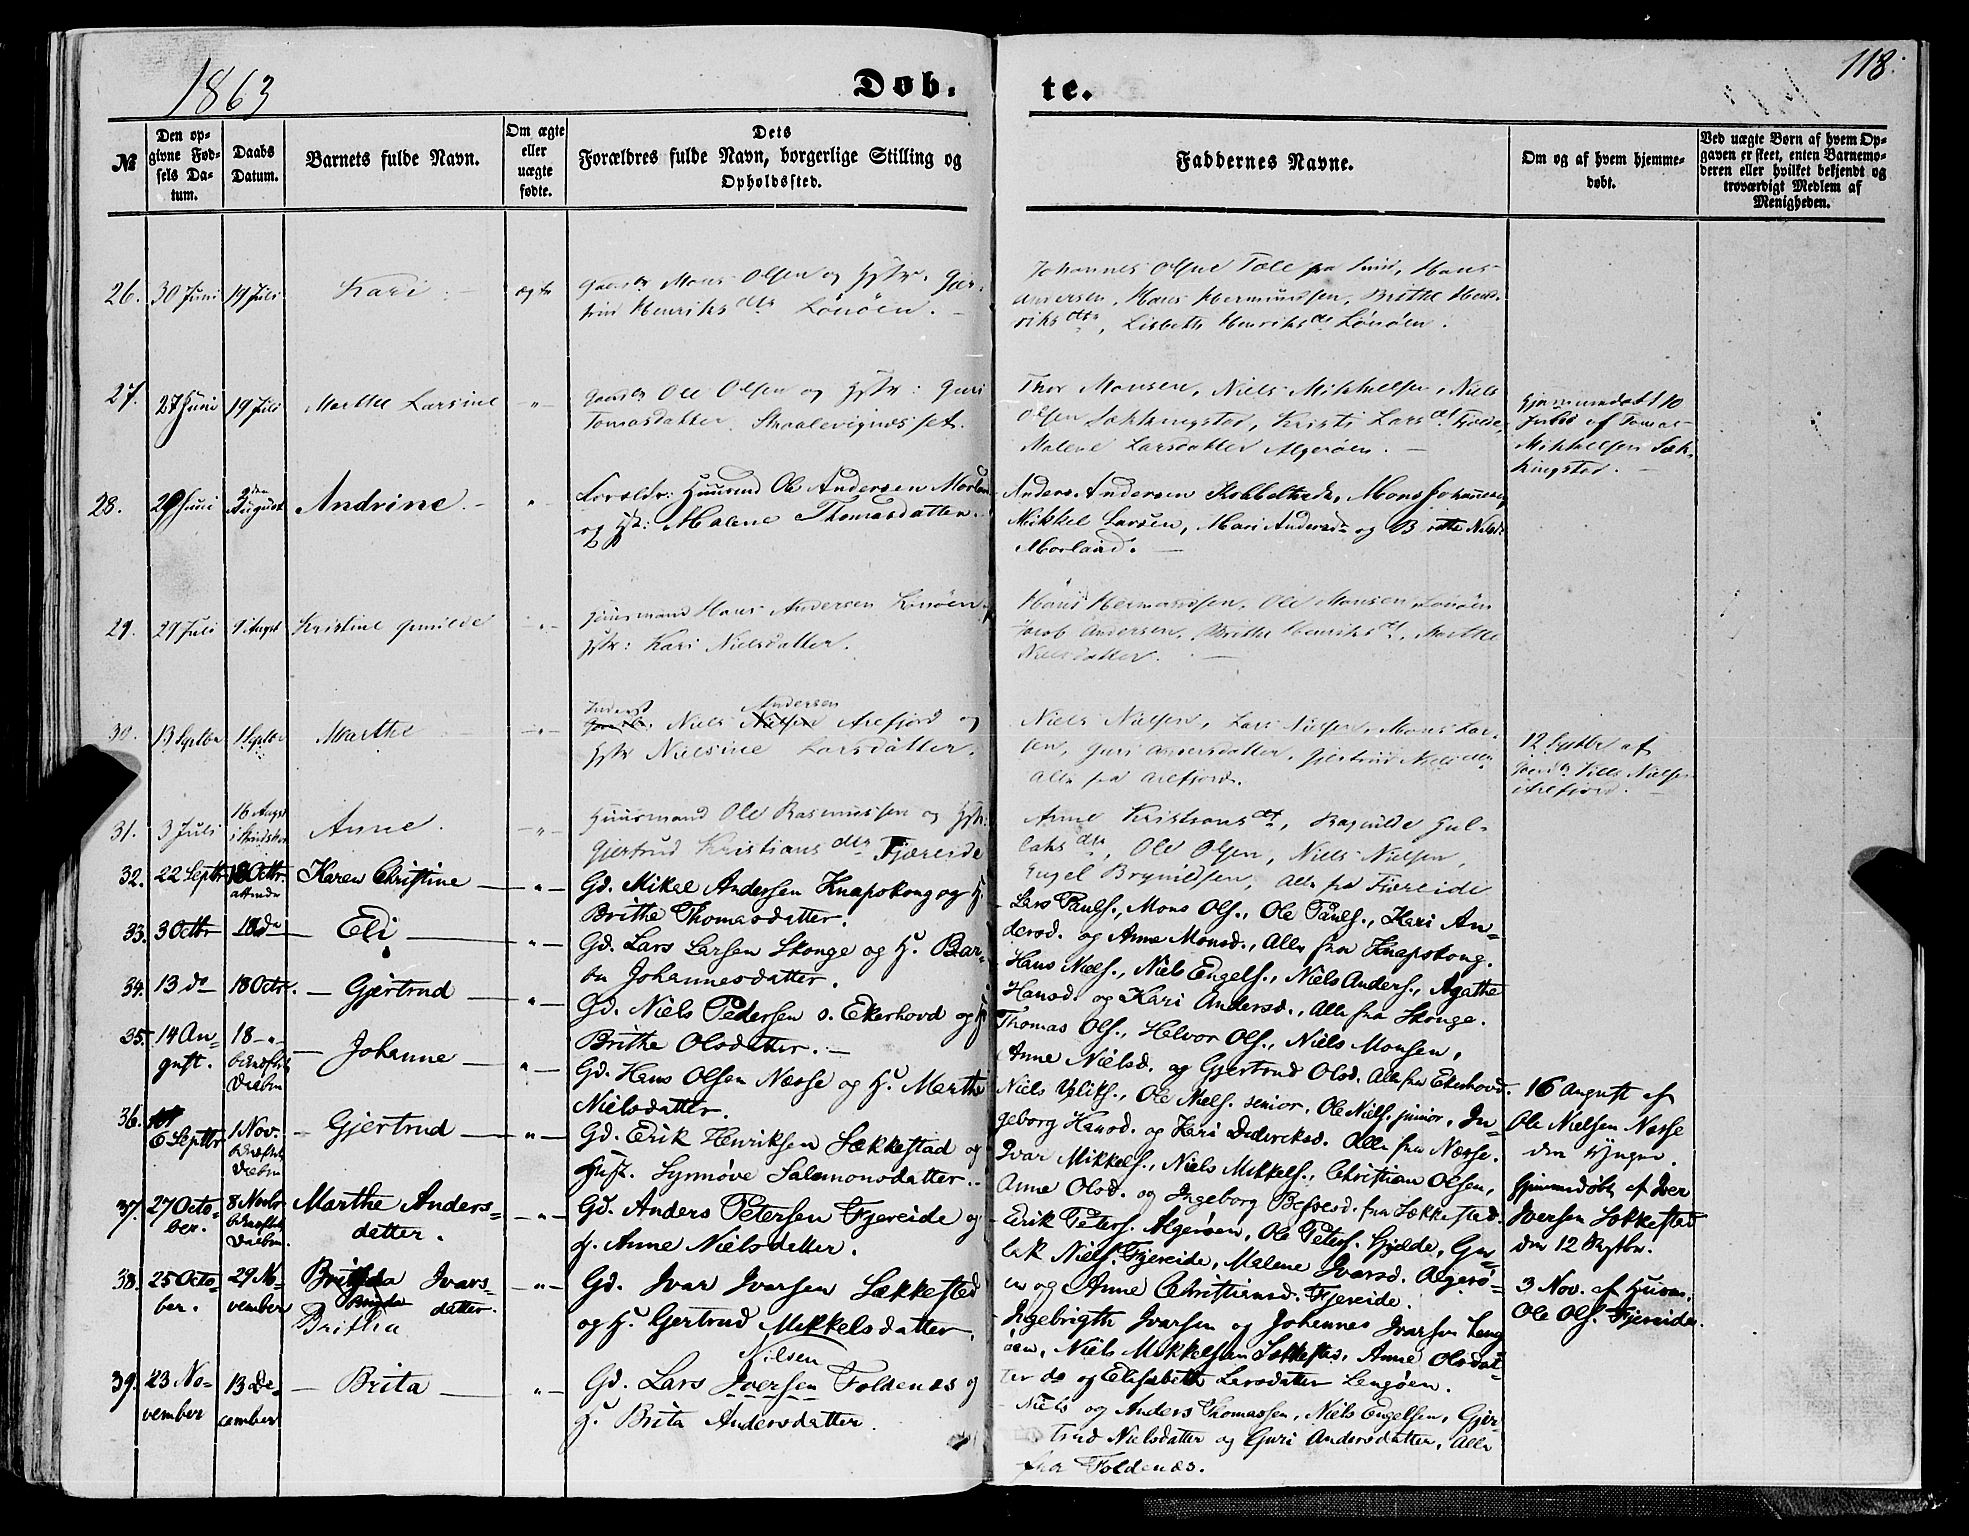 1863
Døb-
te.
118.
№
Den opgivne Fødsels Datum.
Daabs Datum.
Barnets fulde Navn.
Om ægte eller uægte fødte.
Dets Forældres fulde Navn, borgerlige Stilling og Opholdssted.
Faddernes Navne.
Om og af hvem hjemmedøbt.
Ved uægte Børn af hvem Opgaven er skeet, enten Barnemoderen eller hvilket bekjendt og troværdigt Medlem af Menigheden.
26. 30 Juni 19 Juli Kari ægte
Mons Olsen og Hst: Gjer-
trud Henriksdtr Lönöen.
Johannes Olsen Hans
Andersen, Hans Hermundsen, Brithe Hend-
riksdtr, Lisbeth Henriksdt Lönöen.
27. 27 Juni 19 Juli Marthe Larsine -"-
Ole Olsen og Hst: Guri
Tomasdatter Skaalevignesset.
Thor Monsen, Niels Mikkelsen, Niels
Olsen Søkkingstad, Kristi Larsdt
Malene Larsdatter Algeröen.
Hjemmedøbt 10
Juli af Tomas
Mikkelsen Søk-
kingstad.
28. 29 Juni 2den August Andrine. "
Forældr: Huusmd Ole Andersen Morland
og Hst: Malene Thomasdatter.
Anders Andersen Kobbeltvedt, Mons Johannesen
Mikkel Larsen, Mari Andersd og Britte Nielsd.
Morland.
29. 29 Juli 9 Augst Kristine Gunilde "
Huusmand Hans Andersen Lönöen
Hst: Kari Nielsdatter.
Hans Hermundsen, Ole Monsen Lönöen
Jacob Andersen, Brithe Henriksdt, Marthe
Nielsdatter.
30. 13 Septbr Septbr Marthe -"-
Inderst Andersen
Niels Nielsen Arefjord og
Hst Nielsine Larsdatter.
Niels Nielsen, Lars Nielsen, Mons Lar-
sen, Guri Andersdatter, Gjertrud Nielsdtr
Alle fra Arefjord.
12 Septbr af
Niels Nielsen
Arefjord.
31. 3 Juli 16 Augst Anne. -"-
Huusmand Ole Rasmussen og Hst:
Gjertrud Kristiansdtr Fjæreide
Anne Kristiansdt, Ragnilde Gul-
laksdtr, Ole Olsen, Niels Nielsen,
Engel Brynildsen, Alle fra Fjæreide
32. 22 Septbr 18 Octbr. Karen Christine -"-
Gd. Mikel Andersen Knapskong og H.
Brithe Thomasdatter.
Lars Pauls., Mons Ols., Ole Pauls., Kari An-
dersd. og Anne Monsd., Alle fra Knapskong.
33. 3 Octbr 18 do Eli -"-
Gd. Lars Larsen Skonge og H. Bar-
bu Johannesdatter.
Hans Niels., Niels Engels., Niels Anders., Agathe
Hansd. og Kari Andersd., Alle fra Skonge.
34. 13 do 18 Octbr. Gjertrud -"-
Gd. Niels Pedersen s. Ekerhovd og H.
Brithe Olsdatter.
Thomas Ols., Helvor Ols., Niels Monsen,
Anne Nielsd. og Gjertrud Olsd. Alle fra Ekerhovd.
35. 14 Au-
gust. 18 -"- Johanne -"-
Gd. Hans Olsen Næsse og H. Marthe
Nielsdatter.
Niels Uliks., Ole Niels. senior, Ole Niels. junior, In-
geborg Hansd. og Kari Didericksd. Alle fra Næsse.
16 August af
Ole Nielsen Næsse
den yngre.
36. 6 Septbr 1 Nov. Gjertrud -"-
Gd. Erik Henriksen Sækkestad og
Hust. Synnøve Salamonsdatter.
Ivar Mikkels., Niels Mikkels., Christian Olsen,
Anne Olsd. og Ingeborg fra Sækkestad.
Hjemmedøbt af Iver
Iversen Søkkestad
den 12 Septbr.
37. 27 Octo-
ber. 8 Novbr Marthe Anders-
datter. -"-
Gd. Anders Petersen Fjereide og
H. Anne Nielsdatter.
Erik Peters. Algerøen, Ole Peters. Gjelde, Gul-
lak Niels. Fjereide, Malene Ivarsd. Algerö-
en og Anne Christiansd. Fjereide.
3 Nov. af Husm.
Ole Ols. Fjereide.
38. 25 Octo-
ber. 29 No-
vember Ivars-
datter.
Britha -"-
Gd. Ivar Ivarsen Sækkestad
og H. Gjertrud Mikkelsdatter.
Ingebrigth Ivarsen og Johannes Ivarsen Leng
öen, Niels Mikkelsen Søkkestad, Anne Olsdat-
ter do og Elisabeth Larsdatter Lengöen.
39. 23 No-
vember 13 De-
cember Brita -"-
Nilsen
Gd. Lars Iversen Foldenæs og
H. Brita Andersdatter.
Niels og Anders Thomassen, Niels Engelsen, Gjer-
trud Nielsdatter og Guri Andersdatter, Alle
fra Foldenæs.